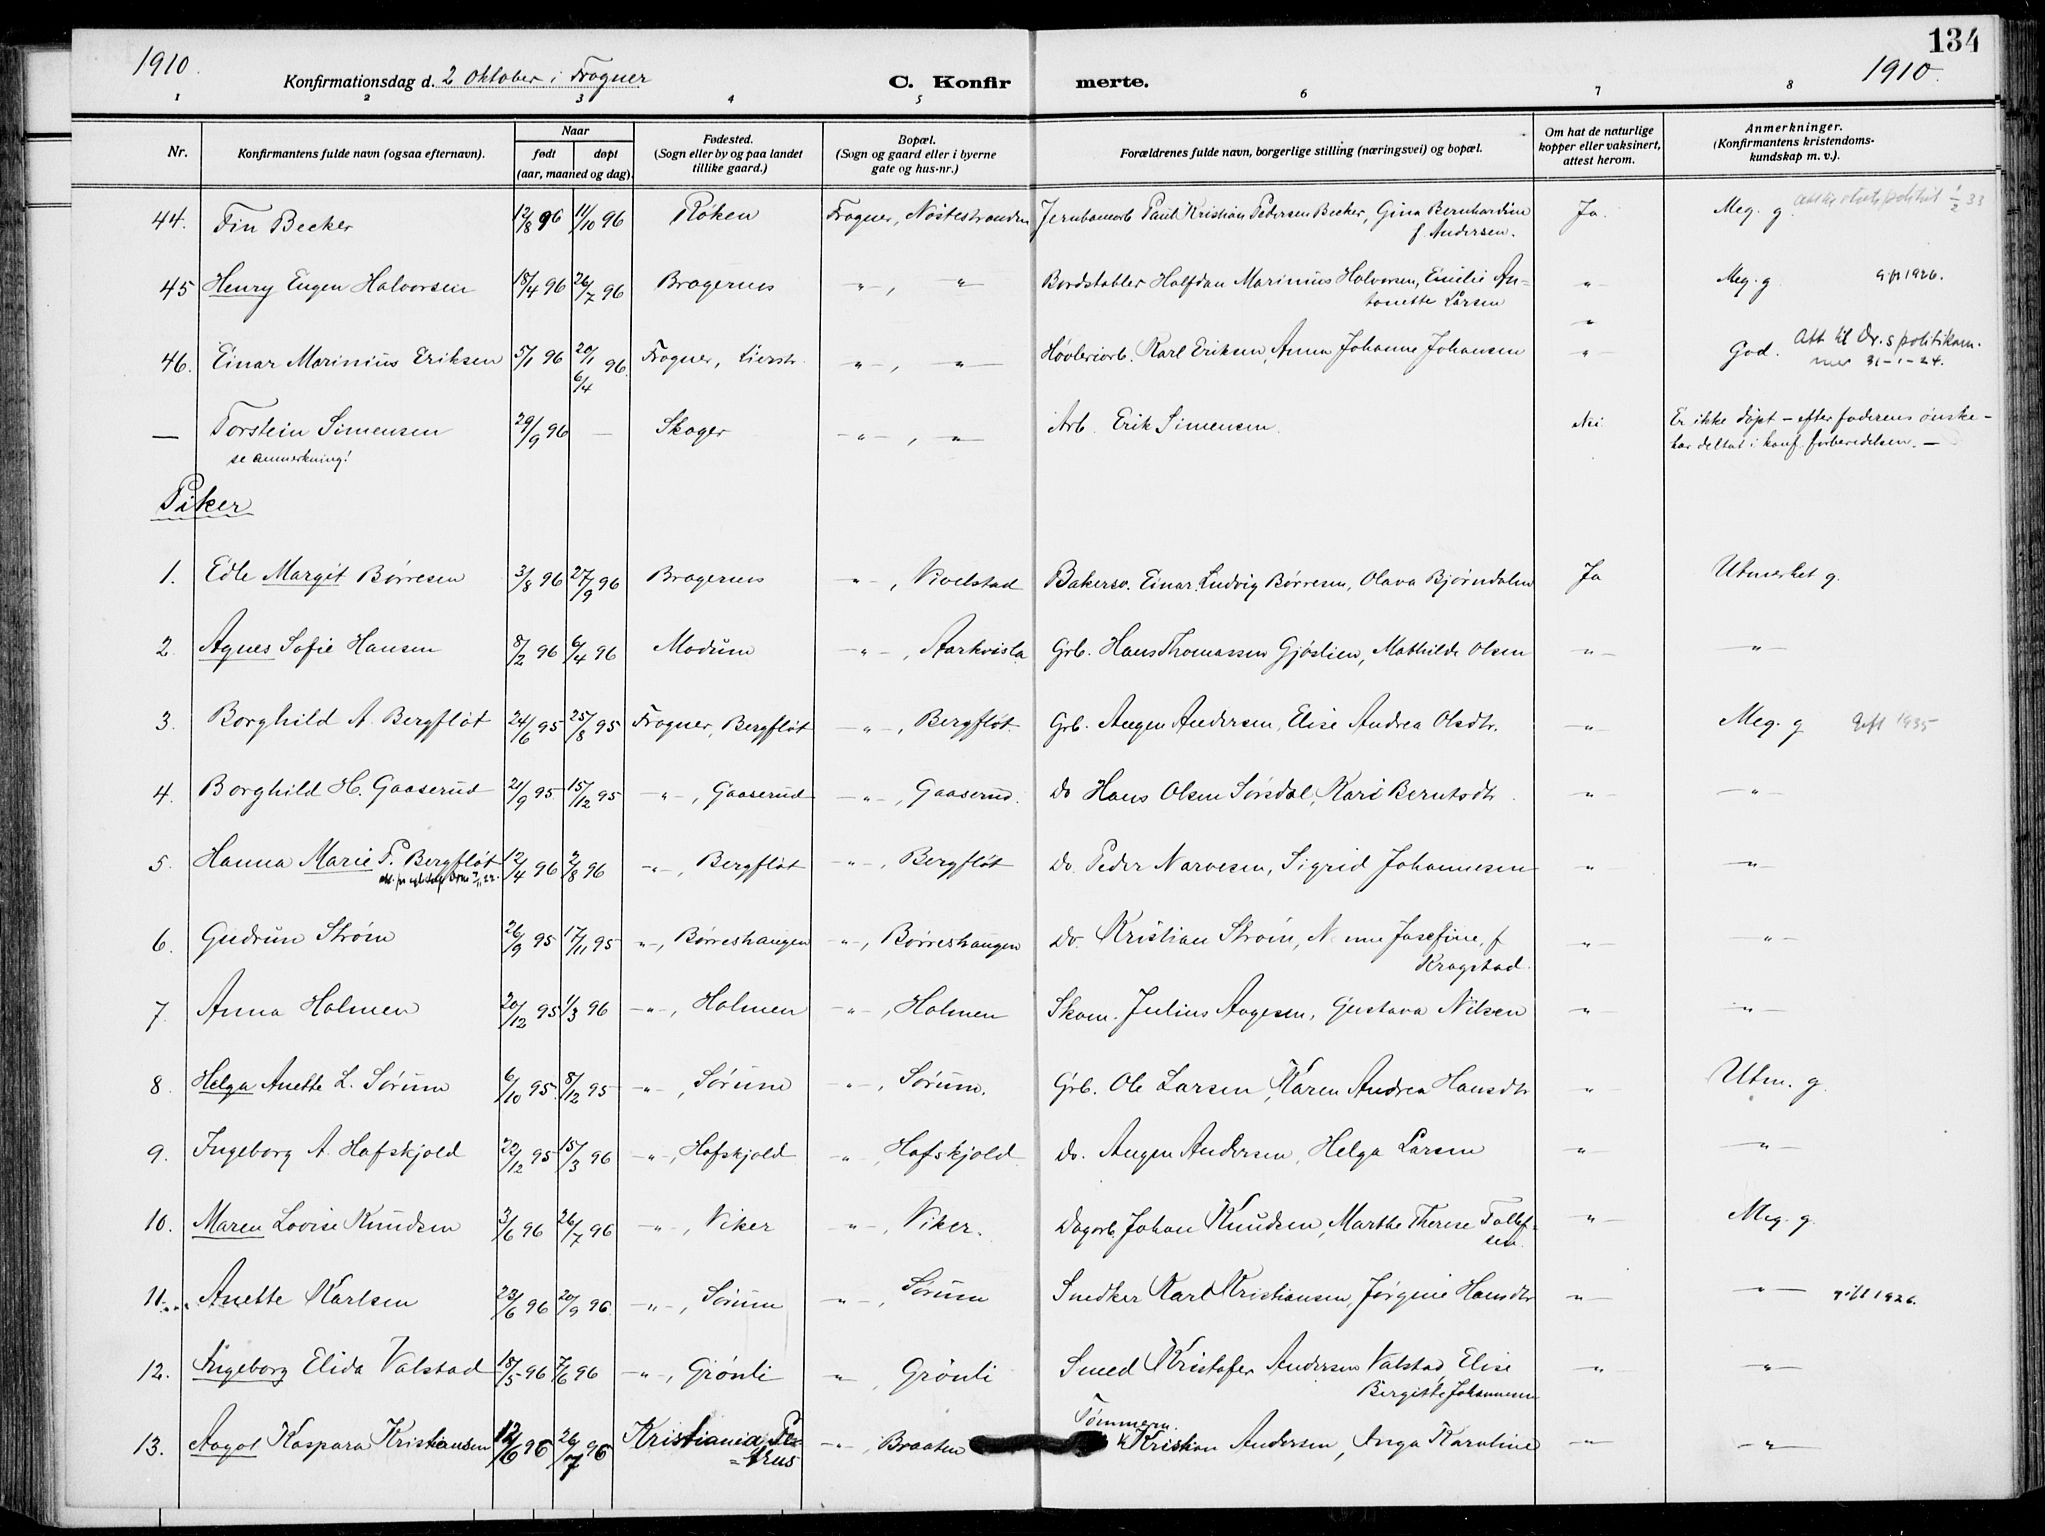 134
1910.
1910.
Konfirmationsdag d. 2 Oktober i Frogner
C. Konfirmerte.
1 2 3 4 5 6 7 8
Nr.
Konfirmantens fulde navn (ogsaa efternavn).
Naar
født døpt
(aar, maaned og dag).
Fødested.
(Sogn eller by og paa landet
tillike gaard.)
Bopæl.
(Sogn og gaard eller i byerne
gate og hus-nr.)
Forældrenes fulde navn, borgerlige stilling (næringsvei) og bopæl.
Om hat de naturlige
kopper eller vaksinert,
attest herom.
Anmerkninger.
(Konfirmantens kristendoms-
kundskap m. v.).
44. Fin Becker 12/8 96 11/10 96 Røken Frogner, Nøstestranden Jernbanearb. Paul Kristian Pedersen Becker, Gina Bernhardine Ja. Meg. g. 1/2 33
f. Andersen.
45 Henry Eugen Halvorsen 18/4 96 26/7 96 Bragernes -"-, -"- Bordstabler Halfdan Marinius Halvorsen, Emilie An- -"- Meg. g. gift 1926.
tonette Larsen
-"-
46. Einar Marinius Eriksen 5/1 96 20/1 96. Frogner, Lierstr. -"-, -"- Høvleriarb. Karl Eriksen, Anna Johanne Johansen -"- God. Att til Dr.s politikam-
6/4
mer 31-1-24.
— Torstein Simensen 29/9 96 — Skoger -"-, -"- Arb. Erik Simensen. Nei Er ikke døpt – efter faderens ønske –
se anmerkning!
har deltat i konf. forberedelsen. —
Piker
1. Edle Margit Børresen 3/8 96 27/9 96 Bragernes -"-, Vivelstad Bakersv. Einar Ludvig Børresen, Olava Bjørndalen Ja Utmerket g.
2. Agnes Sofie Hansen 8/2 96 6/4 96 Modum -"-, Aarkvisla Grb. Hans Thomassen Gjøslien, Mathilde Olsen -"- -"-
3. Borghild A. Bergfløt 24/6 95 25/8 95 Frogner, Bergfløt -"-, Bergfløt. Grb. Augen Andersen, Elise Andrea Olsdtr. -"- Meg. g gift 1935
4. Borghild H. Gaaserud 21/9 95 15/12 95 -"-, Gaaserud -"-, Gaaserud. Do Hans Olsen Sørsdal, Kari Berntsdtr. -"- -"-
5. Hanna Marie P. Bergfløt 12/4 96 2/8 96 -"-, Bergfløt -"-, Bergfløt Do. Peder Narvesen, Sigrid Johannesen -"- -"-
6. Gudrun Strøm 26/9 95 17/11 95 -"-, Børreshaugen -"-, Børreshaugen Do. Kristian Strøm, Josefine, f -"- -"-
Kragstad.
7. Anna Holmen 20/12 95 1/3 96 -"-, Holmen -"-, Holmen Skom. Julius Aagesen, Gustava Nilsen -"- -"-
8. Helga Anette L. Sørum 6/10 95. 8/12 95 -"-, Sørum -"-, Sørum. Grb. Ole Larsen, Karen Andrea Hansdtr -"- Utm. g.
9. Ingeborg A. Hafskjold 22/12 95 15/3 96 -"-, Hafskjold -"-, Hafskjold. Do. Augen Andersen, Helga Larsen -"- -"-
10. Maren Lovise Knudsen 3/6 96 26/7 96 -"-, Viker -"-, Viker. Dagarb. Johan Knudsen, Marthe Therese Tollef- -"- Meg. g.
sen.
11. Anette Karlsen 23/6 96 20/9 96. -"-, Sørum -"-, Sørum Snedker Karl Kristiansen, Jørgine Hansdtr -"- -"- gift 1926.
12. Ingeborg Elida Valstad 18/5 96 7/6 96 -"-, Grønli -"-, Grønli Smed Kristofer Andersen Valstad, Elise -"- -"-
Bergitte Johannesen
Tømmerm.
13. Aagot Kaspara Kristiansen 12/6 96 26/7 96 Kristiania, Pe- -"-, Braaten Kristian Andersen, Inga Karoline -"- -"-
=trus